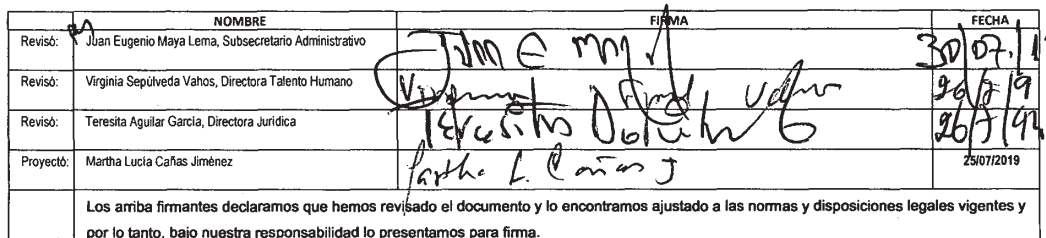 NOMBRE FIRMA FECHA
Revisó: Juan Eugenio Maya Lema, Subsecretario Administrativo
Revisó: Virginia Sepúlveda Vahos, Directora Talento Humano
Revisó: Teresita Aguilar García, Directora Jurídica
Proyectó: Martha Lucía Cañas Jiménez Martha L. Cañas J 25/07/2019
Los arriba firmantes declaramos que hemos revisado el documento y lo encontramos ajustado a las normas y disposiciones legales vigentes y
por lo tanto, bajo nuestra responsabilidad lo presentamos para firma.